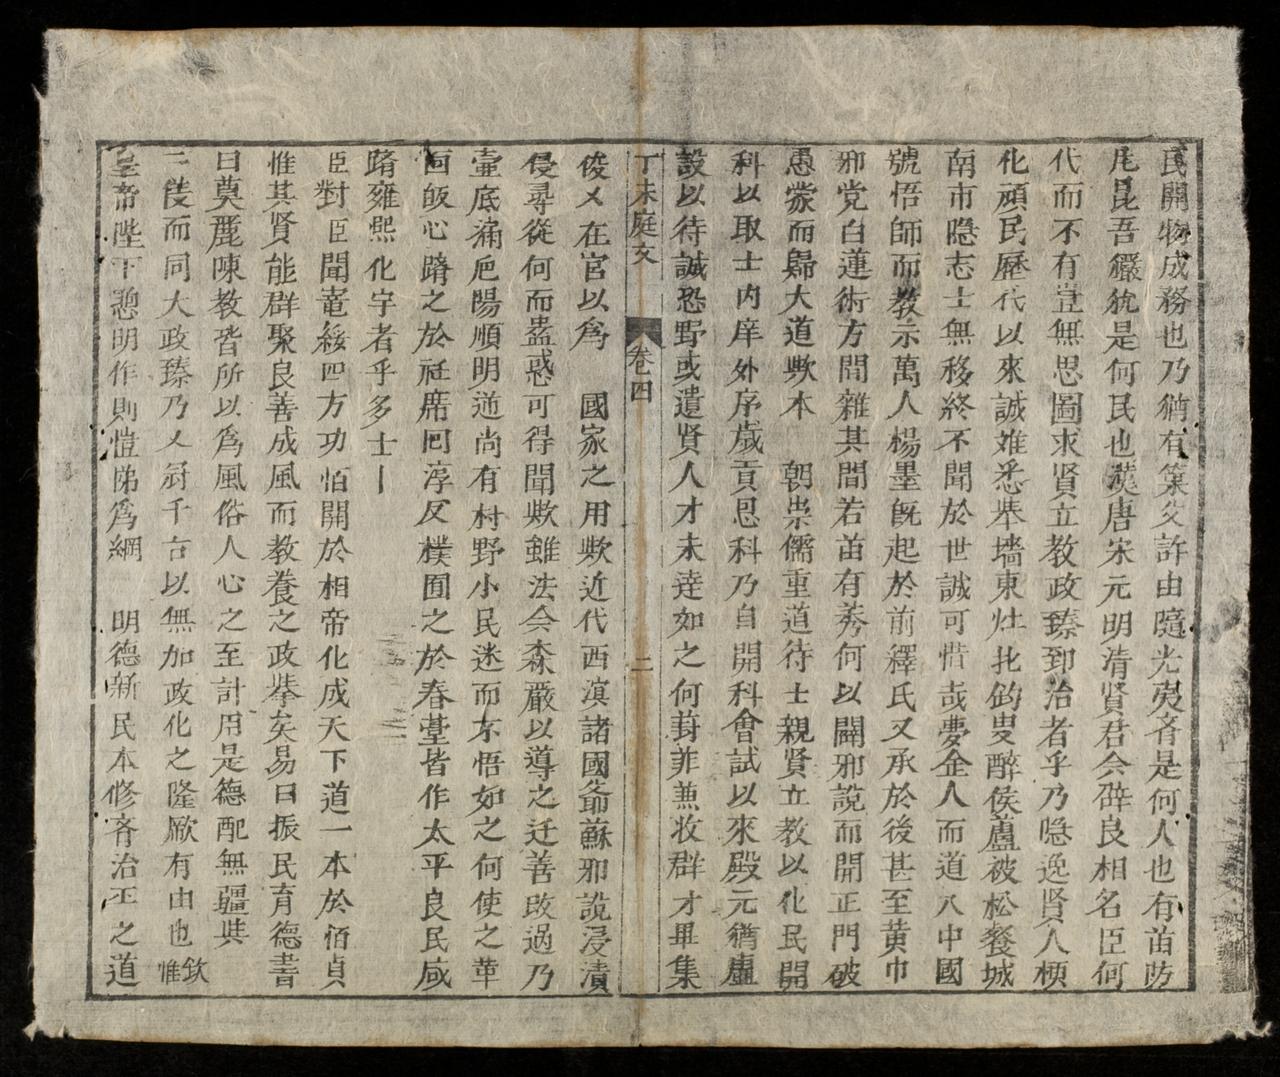 民開物成務也乃猶有巢父許由隨光夷齊是何人也有苗防
尾昆吾玁狁是何民也漢唐宋元明清賢君令辟良相名臣何
代而不有豈無思圖求賢立教政臻郅治者乎乃隐逸賢人梗
化頑民歷代以來誠难悉举墙東灶北钓叟醉侯蘆被松餐城
南市隐志士無移終不聞於世誠可惜哉夢金人而道入中國
號悟師而教示萬人楊墨旣起於前釋氏又承於後甚至黄巾
邪党白蓮術方間雜其間若苗有莠何以闢邪說而開正門破
愚蒙而歸大道歟本　朝崇儒重道待士親賢立教以化民開
科以取士内庠外序歲貢恩科乃自開科會試以來殿元猶虛
設以待誠恐野或遺賢人才未達如之何葑菲兼收群才畢集
丁未庭文　卷四　二
俊乂在官以爲　國家之用歟近代西滇諸國爺蘇邪說浸漬
侵尋從何而蠱惑可得聞歟雖法令森嚴以導之迁善改過乃
壷底漏卮陽順明逆尚有村野小民迷而不悟如之何使之革
面皈心躋之於袵席回淳反樸囿之於春臺皆作太平良民咸
躋雍熙化宇者乎多士丨
臣對臣聞竜綏四方功怕開於相帝化成天下道一本於佰貞
惟其賢能群聚良善成風而教養之政舉矣易曰振民育德書
曰奠麗陳教皆所以爲風俗人心之至計用是德配無疆典
三後而同大政臻乃乂冠千古以無加政化之隆厥有由也欽惟
皇帝陛下憲明作則愷悌爲網　明德新民本修齐治平之道